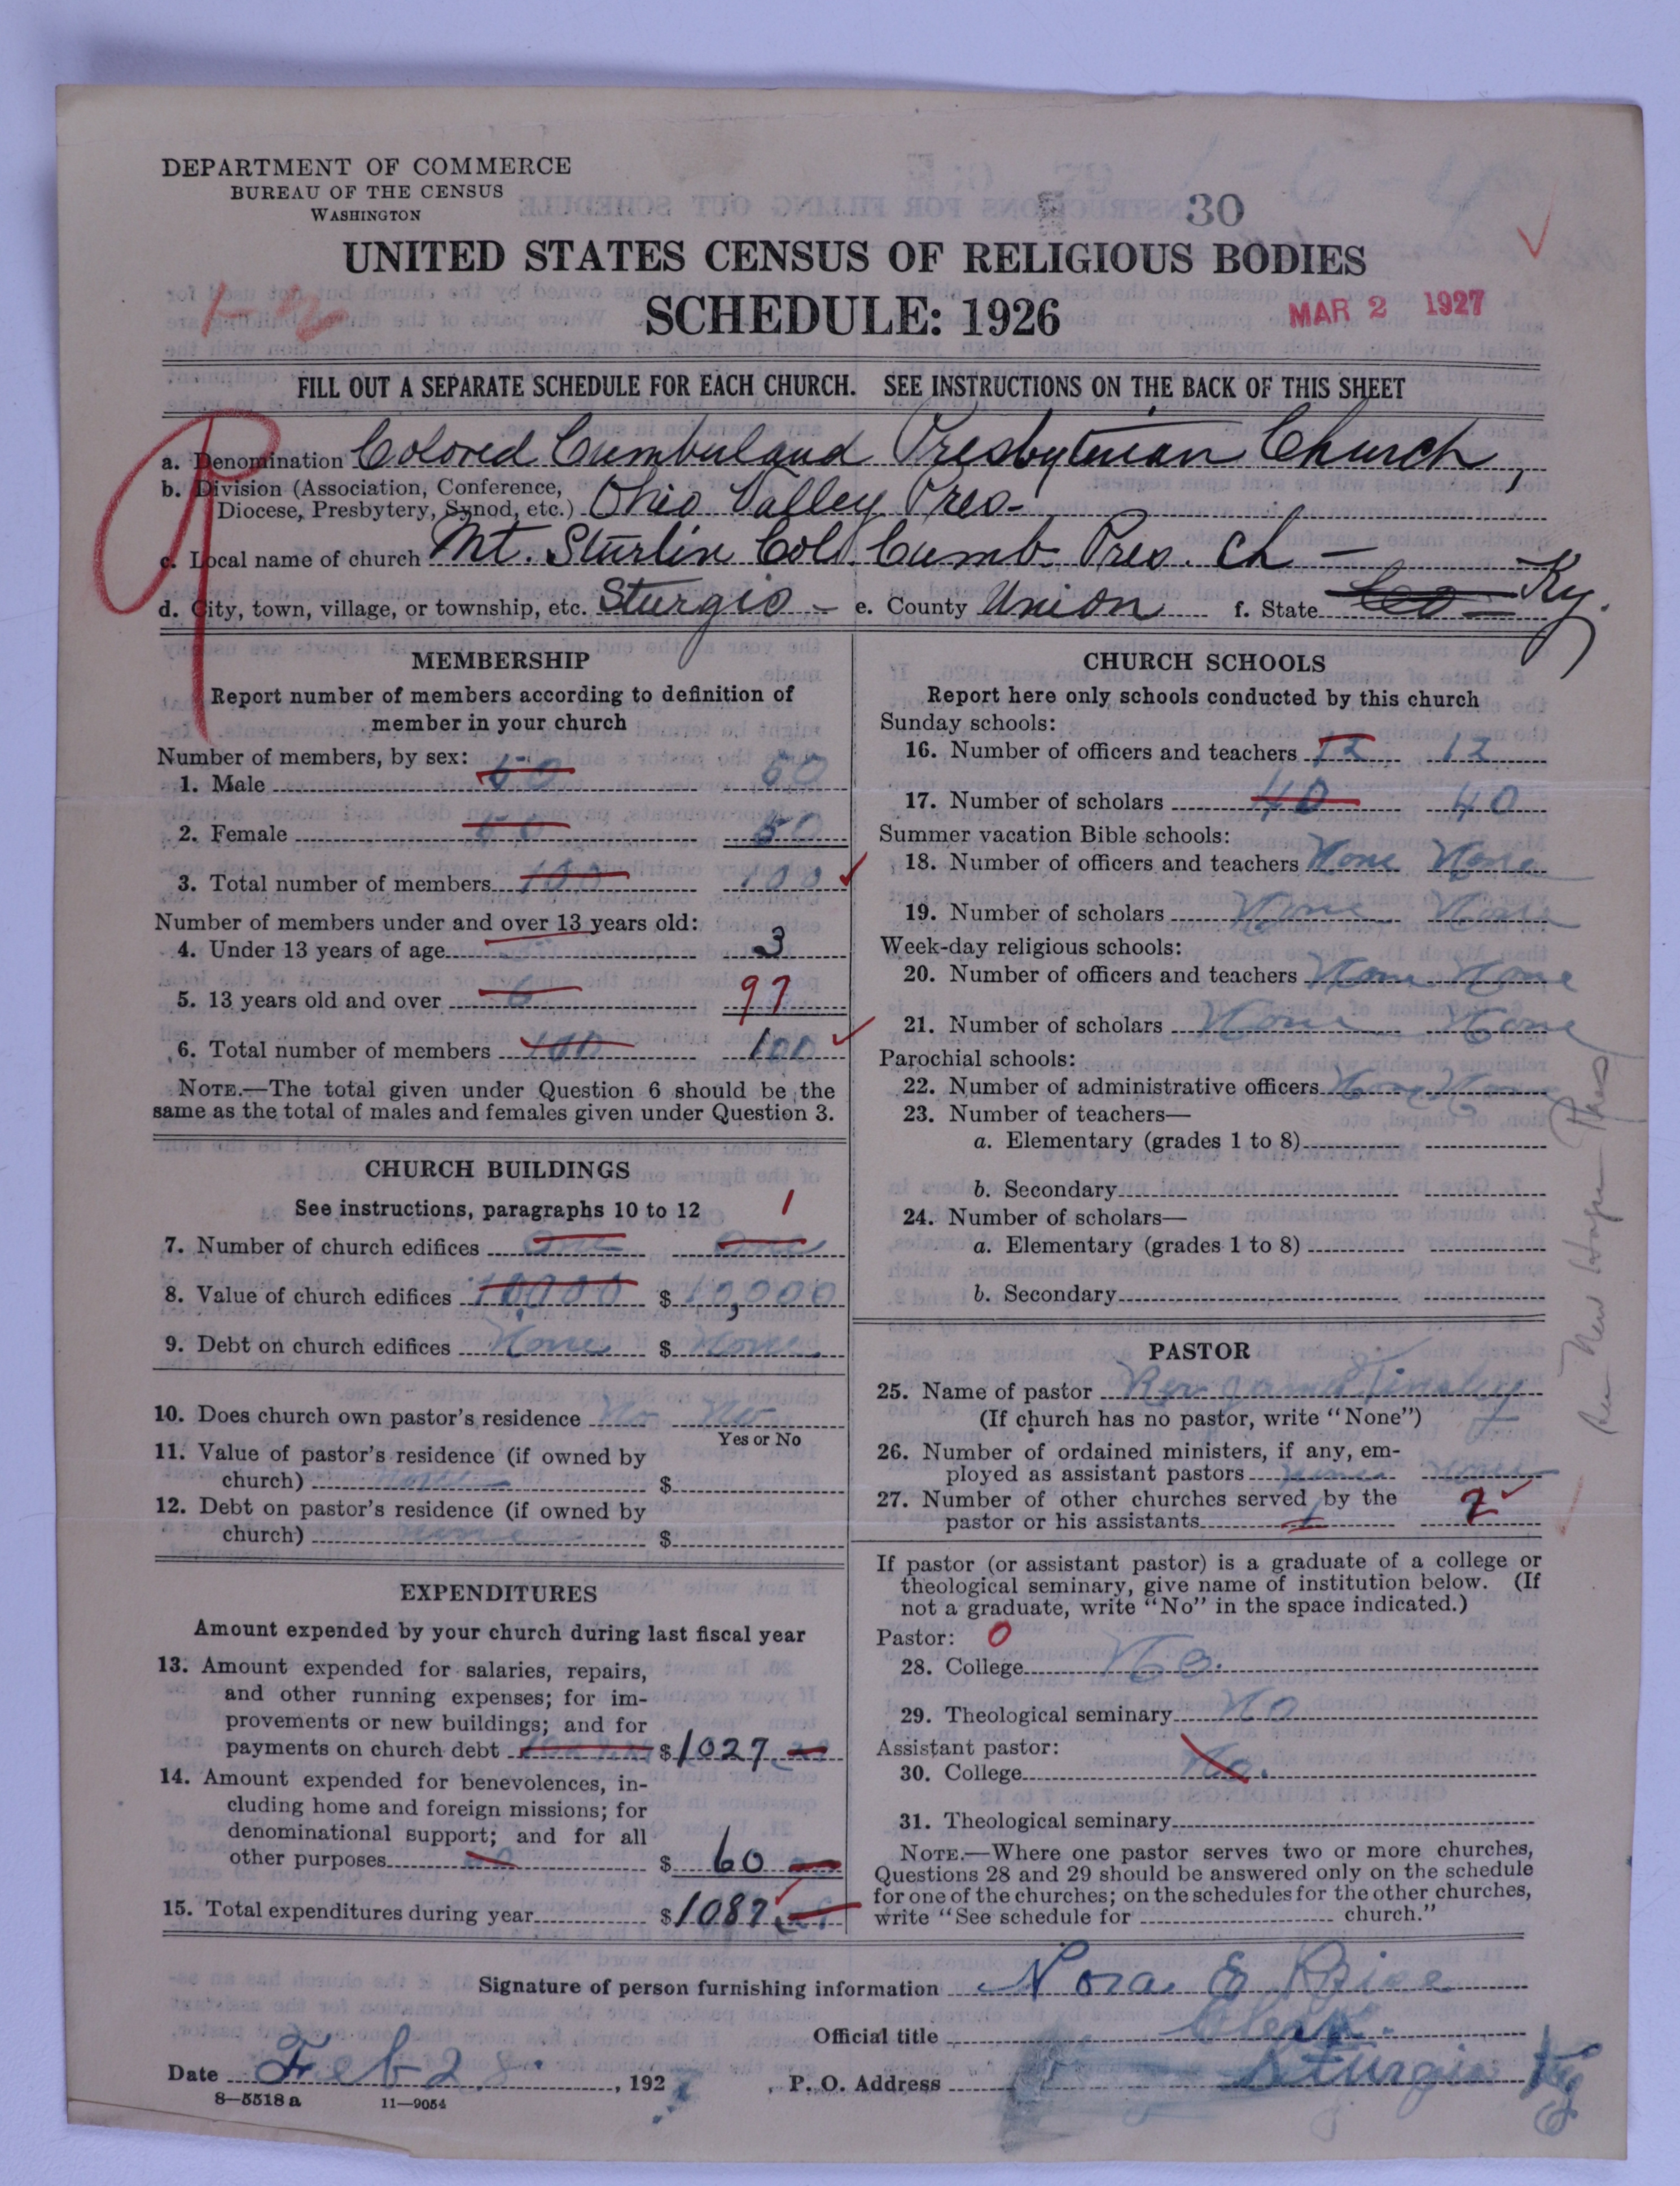 DEPARTMENT OF COMMERCE
BUREAU OF THE CENSUS
WASHINGTON
30
UNITED STATES CENSUS OF RELIGIOUS BODIES
SCHEDULE: 1926
MAR 2 1927
FILL OUT A SEPARATE SCHEDULE FOR EACH CHURCH. SEE INSTRUCTIONS ON THE BACK OF THIS SHEET
a. Denomination Colored Cumberland Presbyterian Church,
b. Division (Association, Conference,
Diocese, Presbytery, Synod, etc.) Ohio Valley Pres-
c. Local name of church Mt. Sturlin Cold. Cumb- Pres. Ch —
d. City, town, village, or township, etc. Sturgis - e. County Union f. State Ky.
MEMBERSHIP
Report number of members according to definition of
member in your church
Number of members, by sex:
1. Male 50
2. Female 50 50
3. Total number of members 100 100
Number of members under and over 13 years old:
4. Under 13 years of age 3
5. 13 years old and over 6 97
6. Total number of members 100 100
NOTE.—The total given under Question 6 should be the
same as the total of males and females given under Question 3.
CHURCH BUILDINGS
See instructions, paragraphs 10 to 12 1
7. Number of church edifices One One
8. Value of church edifices 10000 $ 10,000
9. Debt on church edifices None $ None
10. Does church own pastor's residence No No
Yes or No
11. Value of pastor's residence (if owned by
church) None $
12. Debt on pastor's residence (if owned by
church) None $
EXPENDITURES
Amount expended by your church during last fiscal year
13. Amount expended for salaries, repairs,
and other running expenses; for im-
provements or new buildings; and for
payments on church debt $ 1027
14. Amount expended for benevolences, in-
cluding home and foreign missions; for
denominational support; and for all
other purposes 60 $ 60
15. Total expenditures during year $ 1087
CHURCH SCHOOLS
Report here only schools conducted by this church
Sunday schools:
16. Number of officers and teachers 12 12
17. Number of scholars 40 40
Summer vacation Bible schools:
18. Number of officers and teachers None None
19. Number of scholars None None
Week-day religious schools:
20. Number of officers and teachers None None
21. Number of scholars None None
Parochial schools:
22. Number of administrative officers None None
23. Number of teachers—
a. Elementary (grades 1 to 8)
b. Secondary
24. Number of scholars—
a. Elementary (grades 1 to 8)
b. Secondary
PASTOR
25. Name of pastor Rev Tinsley
(If church has no pastor, write "None")
26. Number of ordained ministers, if any, em-
ployed as assistant pastors None None
27. Number of other churches served by the
pastor or his assistants 1 2
If pastor (or assistant pastor) is a graduate of a college or
theological seminary, give name of institution below. (If
not a graduate, write "No" in the space indicated.)
Pastor: 0
28. College No.
29. Theological seminary No
Assistant pastor:
30. College No.
31. Theological seminary
NOTE.—Where one pastor serves two or more churches,
Questions 28 and 29 should be answered only on the schedule
for one of the churches; on the schedules for the other churches,
write "See schedule for church."
See New Hope Pres
Signature of person furnishing information Nora E Rice
Official title Clerk.
Date Feb 28, 1927 P. O. Address Sturgis Ky
8—5518 a 11—9054